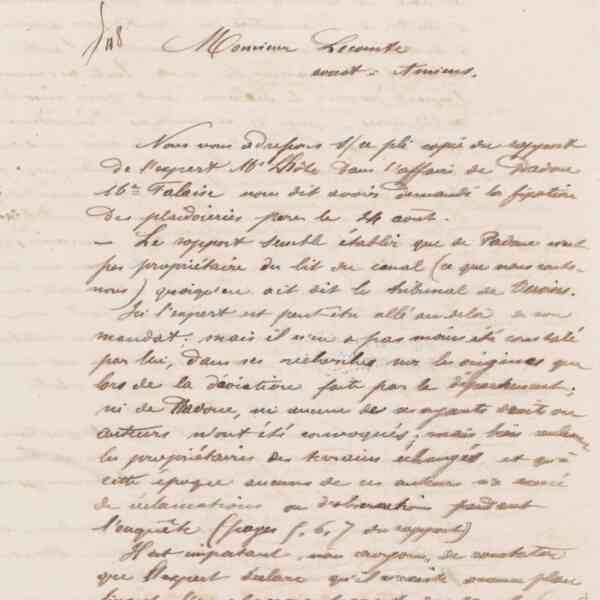 118
Monsieur Lecomte
avoué = Amiens.
Nous vous adressons s/ce pli copie du rapport
de l'expert Mr dans l'affaire de Padoue
Me Falaise nous dit avoir demandé la fixation
des plaidoieries pour le 24 août.
— Le rapport semble établir que de Padoue n'est
pas propriétaire du lit du canal (ce que nous
nous) quoiqu'en ait dit le tribunal de Vervins.
Ici l'expert est peut-être allé au delà de son
mandat; mais il n'en a pas moins été constaté
par lui, dans ses recherches sur les origines que
lors de la déviation faite par le département;
ni de Padoue, ni aucun de ses ayants droit ou
auteurs n'ont été convoqués; mais bien
les propriétaires des terrains échangés et qu'à
cette époque aucuns de ces auteurs n'a
de réclamations ou d'observations pendant
l'enquête (pages 5, 6, 7 du rapport)
Il est important, nous croyons, de constater
que l'expert déclare qu'il n'existe aucun plan